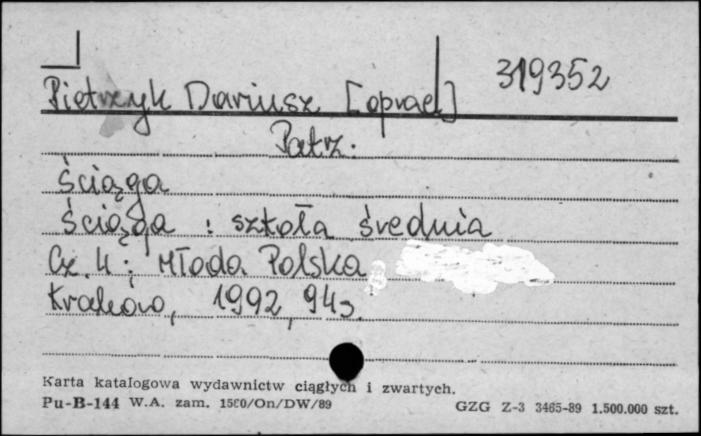 319352
Pietrzyk Dariusz [oprac]
Patrz:
Ściąga
Ściąga : szkoła średnia
Cz. 4 ; Młoda Polska
Kraków, 1992, 94 s.
Karta katalogowa wydawnictw ciągłych i zwartych.
Pu-B-144 W.A. zam. 1580/On/DW/89 GZG Z-3 3465-89 1.500.000 szt.